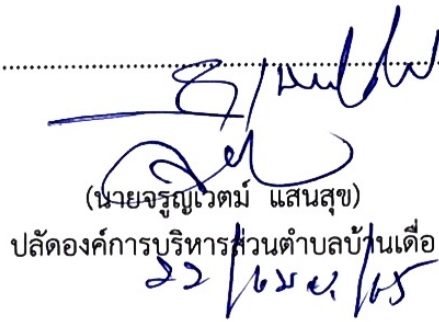 (นายจรูญเวตม์ แสนสุข)
ปลัดองค์การบริหารส่วนตำบลบ้านเดื่อ
22/เม.ย./65